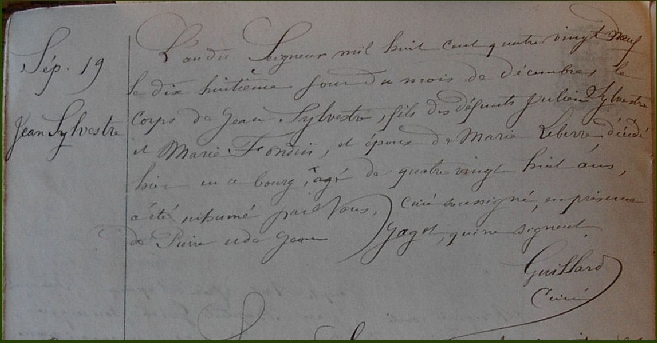 Sép. 19
Jean Sylvestre
L'an du Seigneur mil huit cent quatre vingt neuf
le dix huitième jour du mois de décembre, le
corps de Jean Sylvestre, fils des défunts Julien Sylvestre
et Marie, et époux de Marie Leberre décédé
hier en ce bourg, âgé de quatre vingt huit ans,
a été inhumé par Nous, Curé soussigné, en présence
de Pierre et de Jean Jagot, qui ne signent
Guillard
Curé